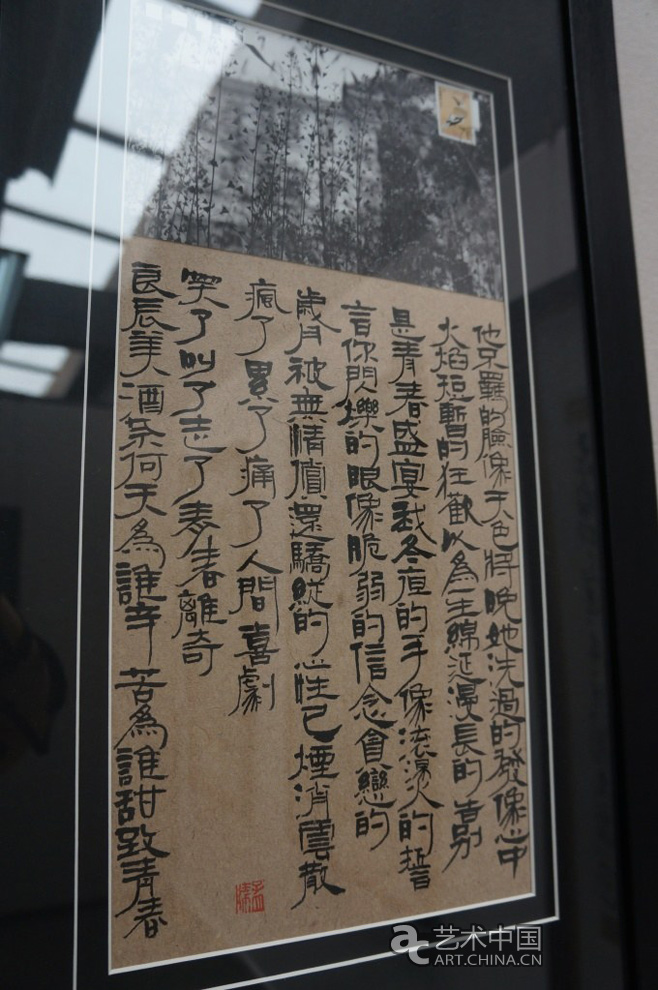 他不羈的臉像天色將晚她洗過的發像心中
火焰短暫的狂歡以為一生綿延漫長的告别
是青春盛宴我冬夜的手像滾燙的誓
言你閃爍的眼像脆弱的信念貪戀的
歲月被無情償還驕縱的心性已煙消雲散
瘋了累了痛了人間喜劇
笑了叫了走了青春離奇
良辰美酒奈何天為誰辛苦為誰甜致青春
艺术中国
ART.CHINA.CN